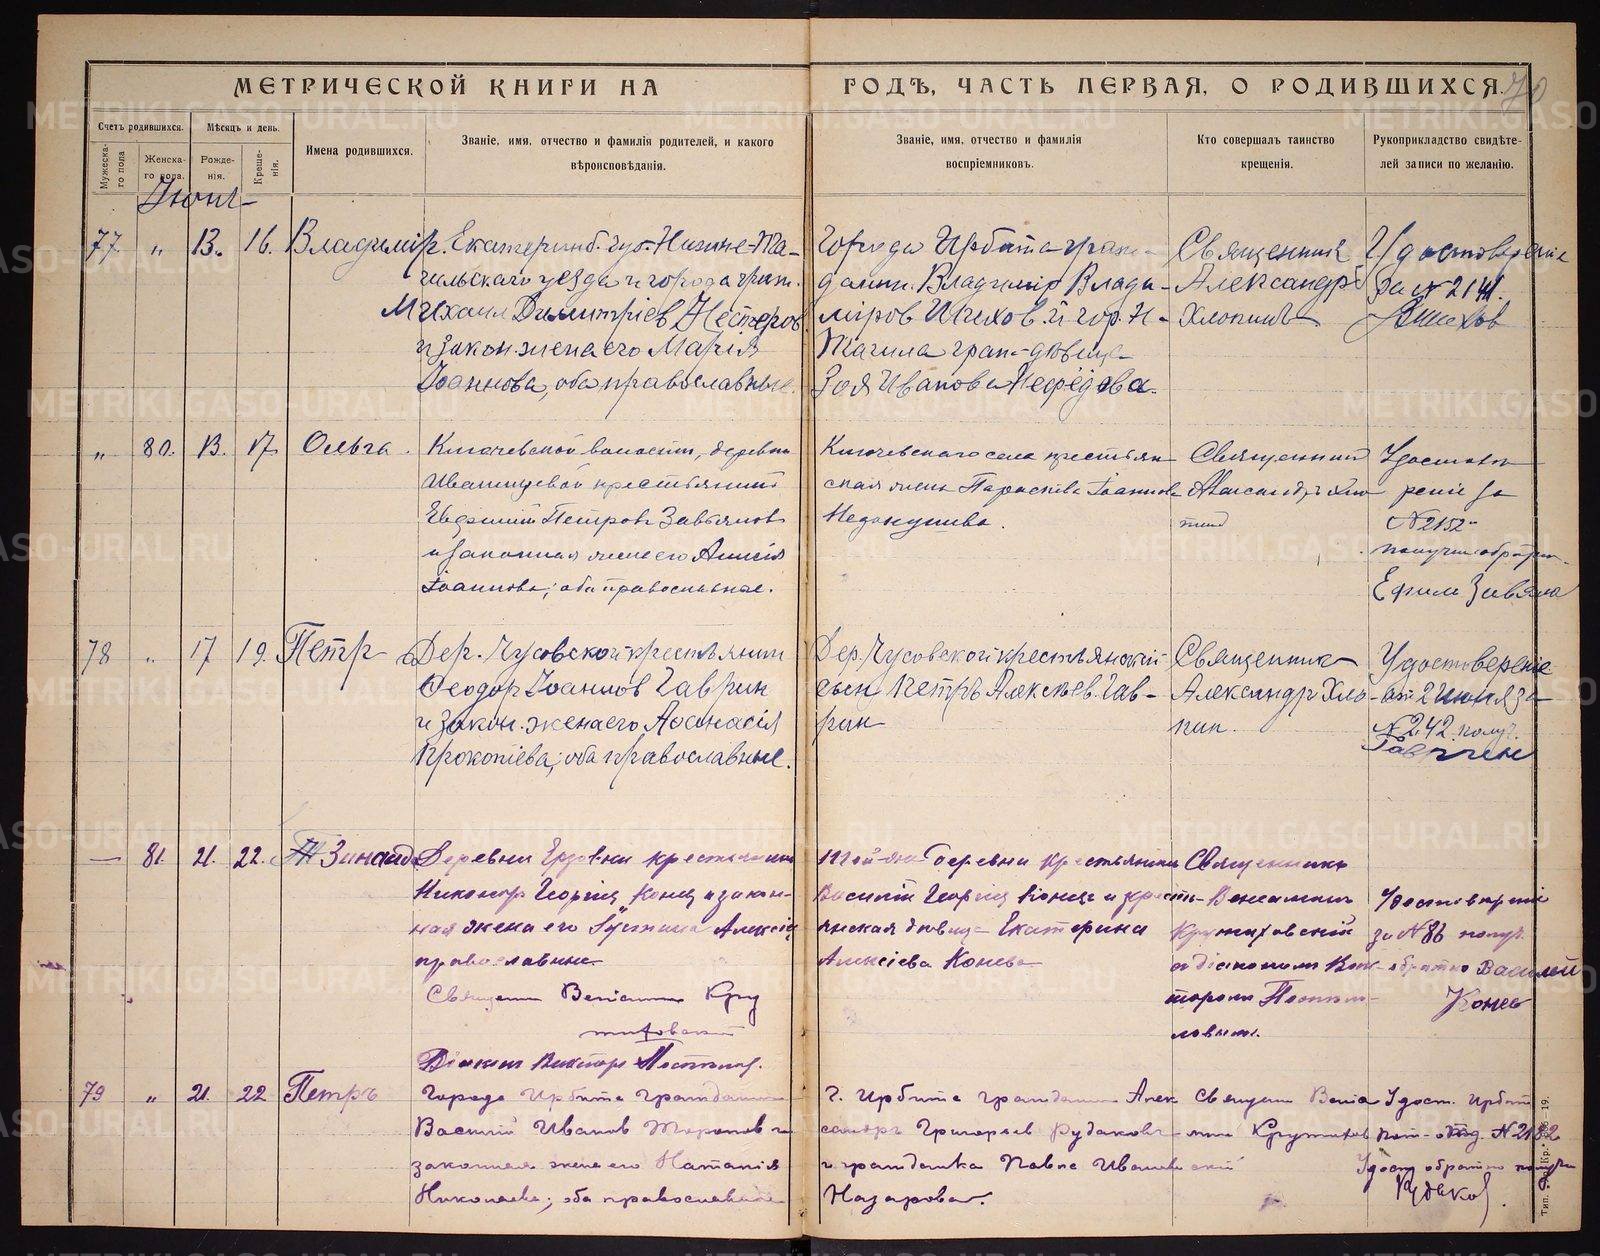 МЕТРИЧЕСКОЙ КНИГИ НА ГОДЪ, ЧАСТЬ ПЕРВАЯ, О РОДИВШИХСЯ.
70
Счетъ родившихся.
Мѣсяцъ и день.
Мужеска-го пола
Женска-го пола.
Рожде-нія.
Креще-нія.
Имена родившихся.
Званіе, имя, отчество и фамилія родителей, и какого
вѣроисповѣданія.
Званіе, имя, отчество и фамилія
воспріемниковъ.
Кто совершалъ таинство
крещенія.
Рукоприкладство свидѣте-
лей записи по желанію.
77 „ 13. 16. Владимір.
Екатеринб. губ. Нижне-Та-
гильскаго уезда и города граж.
Михаил Димитріев Нестеров
и закон. жена его Марія
Іоаннова, оба православные.
Города Ирбита граж-
данин Владимір Влади-
міров Шихов и гор. Н-
Тагила граж. дѣвица
Зоя Иванова Нефёдова.
Священник
Александр
Хлопин
Удостоверение
за № 2141.
Шихов
„ 80. 13. 17. Ольга.
Ключевской волости, деревни
крестьянин
Петров Завьялов
и законная жена его Анисія
Іоаннова; оба православные.
Ключевскаго села крестьян
ская жена Параскева Іоаннова
Священник
Александр Хло
пин
Удостове
реніе за
№ 2152
получил обратно
Ефим Завьяло
78 „ 17 19. Петр
Дер. Чусовской крестьянин
Феодор Іоаннов Гаврин
и закон. жена его Афанасія
Прокопіева; оба православные.
Дер. Чусовской крестьянский
сын Петръ Алексѣев Гав-
рин
Священник
Александр Хло-
пин.
Удостоверение
от 2 июня за
№ 242 получ.
Гаврин
— 81. 21. 22. Зинаид
Деревни крестьянин
Никонор Георгіев Конев и закон-
ная жена его Іустина Алексіе
православные
Священник Веніамин Кру
тиховский
Діакон Виктор
Той-же деревни крестьянин
Василій Георгіев Конев и кресть-
янская дѣвица Екатерина
Алексіева Конева
Священник
Веніамин
Крутиховскій
с діаконом Вик-
тором
Удостоверение
за № 86 получ.
обратно Василей
Конев
79 „ 21. 22 Петръ
Города Ирбита гражданин
Василий Иванов и
законная жена его Наталія
Николаева; оба православные
г. Ирбита гражданин Алек
сандръ Григорьев Рудаков
и гражданка Павла Иванова
Назарова.
Священ Веніа
мин Крутихов
ский
Удост. Ирбит
№ 2182
Удост обратно получил
Рудаков